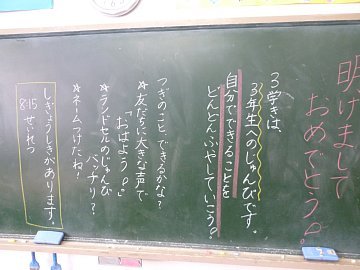 明けまして
おめでとう!!
3学きは、
3年生へのじゅんびです。
自分でできることを
どんどんふやしていこう!
つぎのこと、できるかな?
☆友だちに大きな声で
「おはよう!!」
☆ランドセルのじゅんび
バッチリ?
☆ネームつけたね!
しぎょうしきがあります。
8:15 せいれつ